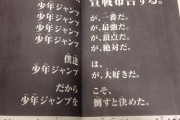 宣戦布告する。
少年ジャンプが、一番だ。
少年ジャンプが、最強だ。
少年ジャンプが、頂点だ。
少年ジャンプが、絶対だ。
僕達は、
少年ジャンプが、大好きだ。
だからこそ、
少年ジャンプを倒すと決めた。